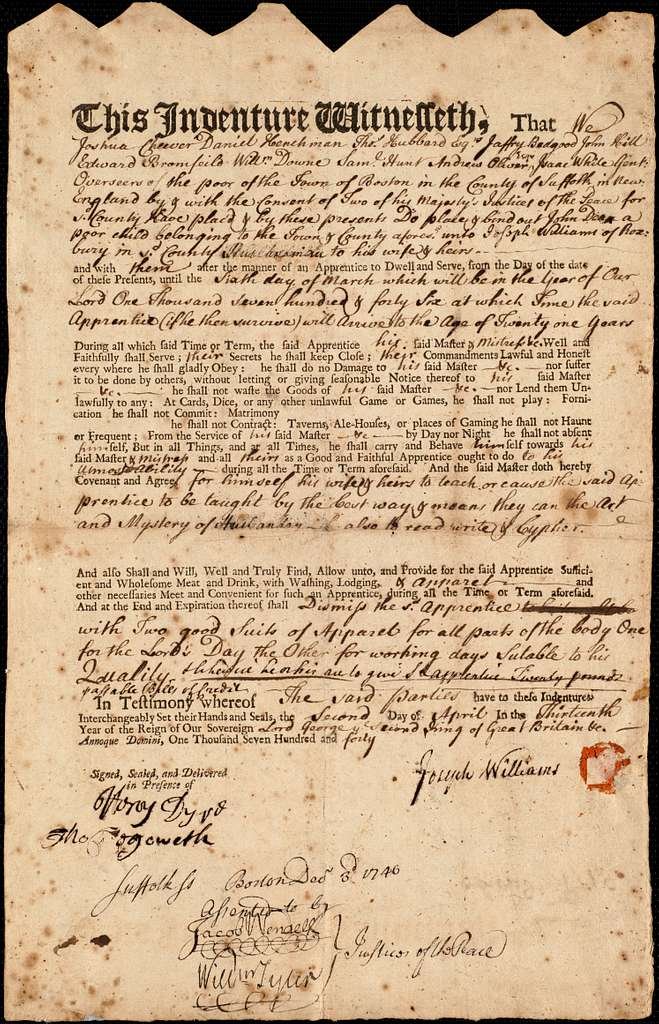 This Indenture Witnesseth, That We
Joshua Cheever Daniel Henchman Thos. Hubbard Esqrs. Jaffry Bedgood John Hill
Edward Bromfeild Willm Downe Saml. Hunt Andrew Oliver Isaac White Gent.
Overseers of the poor of the Town of Boston in the County of Suffolk in New
England by & with the Consent of Two of his Majesty's Justices of the Peace for
sd. County Have placd & by these presents Do place & bind out John a
poor child belonging to the Town & County aforesd. unto Joseph Williams of Rox
bury in sd. County Husbandman to his wife & heirs
and with them after the manner of an Apprentice to Dwell and Serve, from the Day of the date
of these Presents, until the Sixth day of March which will be in the Year of Our
Lord One Thousand Seven hundred & forty Six at which Time the said
Apprentice (if he then survive) will Arrive to the Age of Twenty one Years
During all which said Time or Term, the said Apprentice his said Master & Mistress &c. Well and
Faithfully shall Serve; their Secrets he shall keep Close; their Commandments Lawful and Honest
every where he shall gladly Obey: he shall do no Damage to his said Master &c. nor suffer
it to be done by others, without letting or giving seasonable Notice thereof to his said Master
&c. he shall not waste the Goods of his said Master &c. nor Lend them Un-
lawfully to any: At Cards, Dice, or any other unlawful Game or Games, he shall not play: Forni-
cation he shall not Commit: Matrimony
he shall not Contract: Taverns, Ale-Houses, or places of Gaming he shall not Haunt
or Frequent; From the Service of his said Master &c by Day nor Night he shall not absent
himself, But in all Things, and at all Times, he shall carry and Behave himself towards his
said Master & Mistress and all theirs as a Good and Faithful Apprentice ought to do to his
utmost ability during all the Time or Term aforesaid. And the said Master doth hereby
Covenant and Agree for himself his wife & heirs to teach or cause the said Ap
prentice to be taught by the best way & means they can the Art
and Mystery of Husbandry also to read write & Cypher.
And also Shall and Will, Well and Truly Find, Allow unto, and Provide for the said Apprentice Suffici-
ent and Wholesome Meat and Drink, with Washing, Lodging, & apparel and
other necessaries Meet and Convenient for such an Apprentice, during all the Time or Term aforesaid.
And at the End and Expiration thereof shall Dismiss the sd. Apprentice
with Two good Suits of Apparel for all parts of the body One
for the Lord's Day the Other for working days Sutable to his
Quality to give sd. apprentice Twenty pounds
passable Bills of Credit
In Testimony whereof The said parties have to these Indentures
Interchangeably Set their Hands and Seals, the Second Day of April In the Thirteenth
Year of the Reign of Our Sovereign Lord George ye. Second King of Great Britain &c.
Annoque Domini, One Thousand Seven Hundred and forty
Signed, Sealed, and Delivered
in Presence of
Joseph Williams
Suffolk Ss Boston Decr. 3d 1740
Assented to by
Jacob Wendell
Justices of the Peace
Willm Tyler